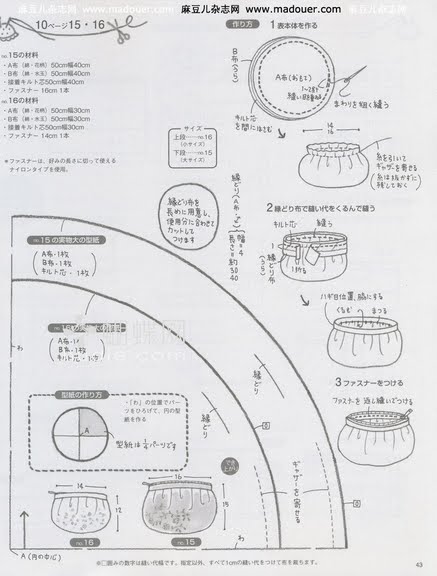 麻豆儿杂志网 www.madouer.com
www.madouer.com 麻豆儿杂志网
10ページ15・16
no.15の材料
・A布（綿・花柄）50cm幅40cm
・B布（綿・水玉）50cm幅40cm
・接着キルト芯50cm幅40cm
・ファスナー 16cm 1本
no.16の材料
・A布（綿・花柄）50cm幅30cm
・B布（綿・水玉）50cm幅30cm
・接着キルト芯50cm幅30cm
・ファスナー 14cm 1本
＊ファスナーは、好みの長さに切って使える
ナイロンタイプを使用。
サイズ
上段……no.16
（小サイズ）
下段……no.15
（大サイズ）
作り方
1表本体を作る
B布（うら）
A布（おもて）
キルト芯
を間にはさむ
まわりを細く縫う
14
16
糸を引いて
ギャザーを寄せる
（糸は抜かずに
残しておく）
縁どり布を
長めに用意し、
使用分に合わせて
カットして
つけます
縁どり（A布・
幅=4
長さ=約
30
40
2縁どり布で縫い代をくるんで縫う
キルト芯
縁どり布
（うら）
1折る
ハギ目位置、脇にする
くるむ
まつる
3ファスナーをつける
ファスナーを返し縫いでつける
no.15の実物大の型紙
A布・1枚
B布・1枚
キルト芯・1枚
わ
型紙の作り方
・（わ）の位置でパー
ツをひろげて、円の型
紙を作る
A
型紙は¼パーツです
縁どり
縁どり
ギャザーを寄せる
0
0
でき上がり
14
12
no.16
16
15
no.15
わ
A（円の中心）
※□囲みの数字は縫い代幅です。指定以外、すべて1cmの縫い代をつけて布を裁ちます。
43